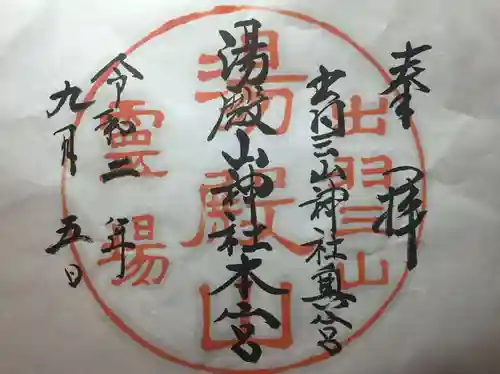 奉拝
出羽三山神社奥宮
湯殿山神社本宮
令和二年
九月五日
出羽三山
湯殿山
霊場